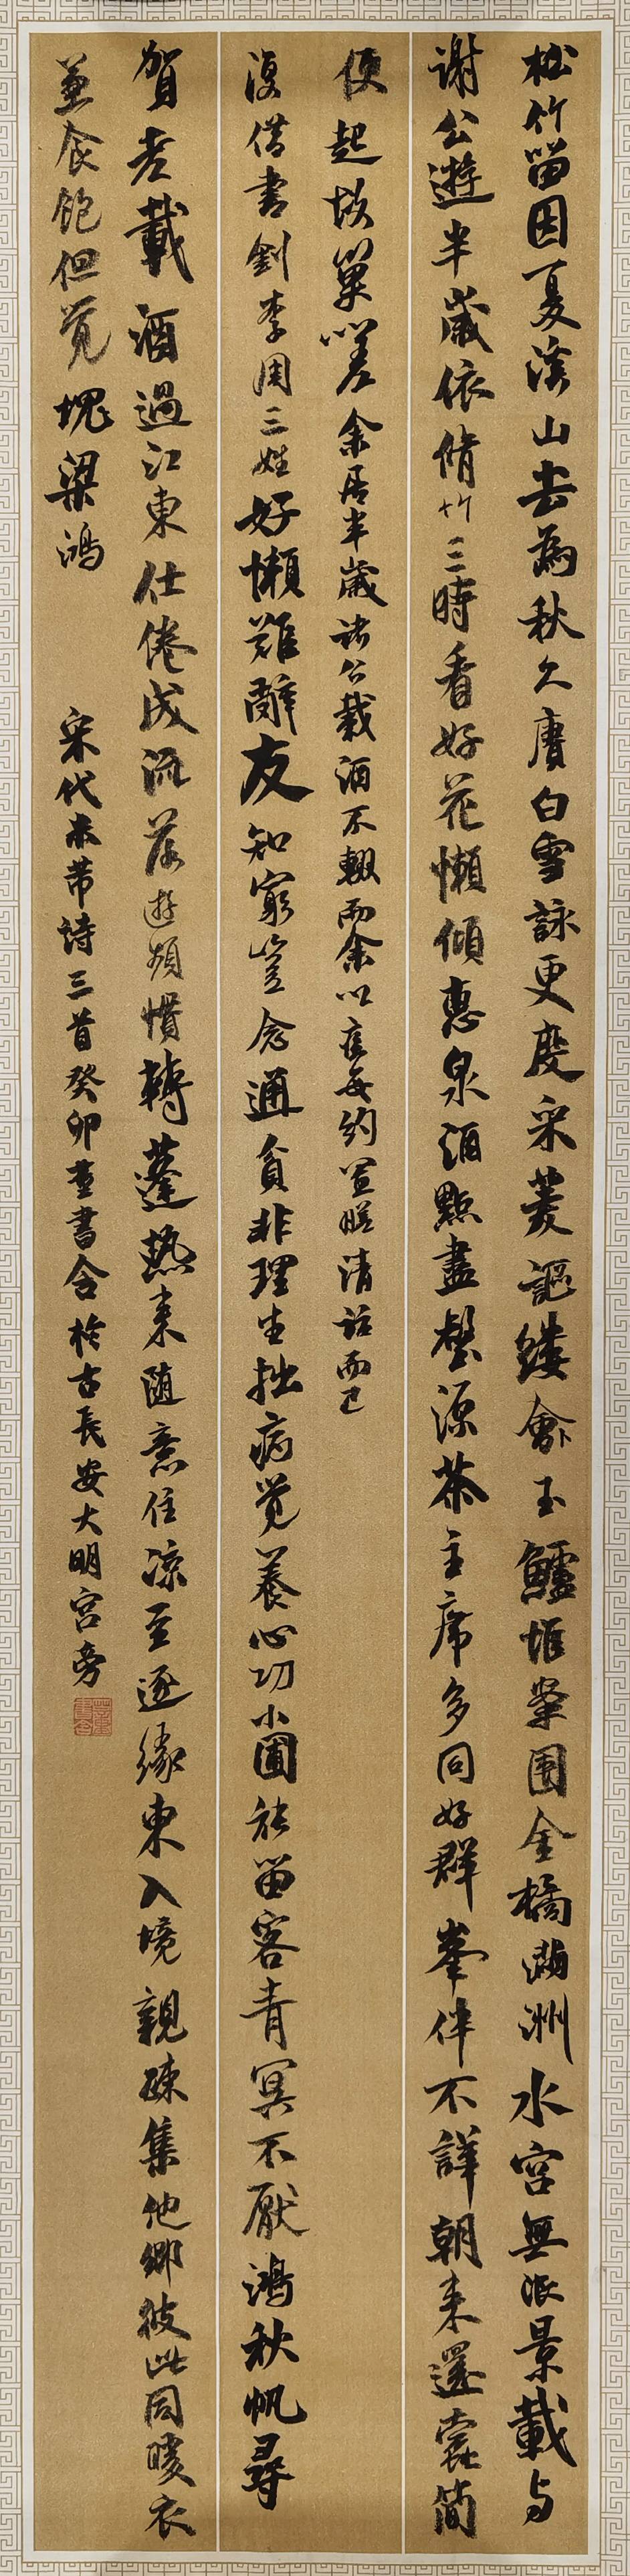 松竹留因夏溪山去為秋久賡白雪詠更度采菱謳縷會玉鱸堆案團金橘滿洲水宮無限景載与
謝公遊半歲依脩竹三時看好花懶傾惠泉酒點盡壑源茶主席多同好群峯伴不譁朝来還蠹簡
便起故巢嗟余居半歲諸公載酒不輟而余以疾每約置膳清話而已
復借書劉李周三姓好懶難辭友知窮豈念通貧非理生拙病覺養心功小圃能留客青冥不厭鴻秋帆尋
賀老載酒過江東仕倦成流落遊頻慣轉蓬熱来随意住涼至逐緣東入境親疎集他鄉彼此同暖衣
兼食飽但覺愧梁鴻
宋代米芾詩三首癸卯董書舍於古長安大明宮旁